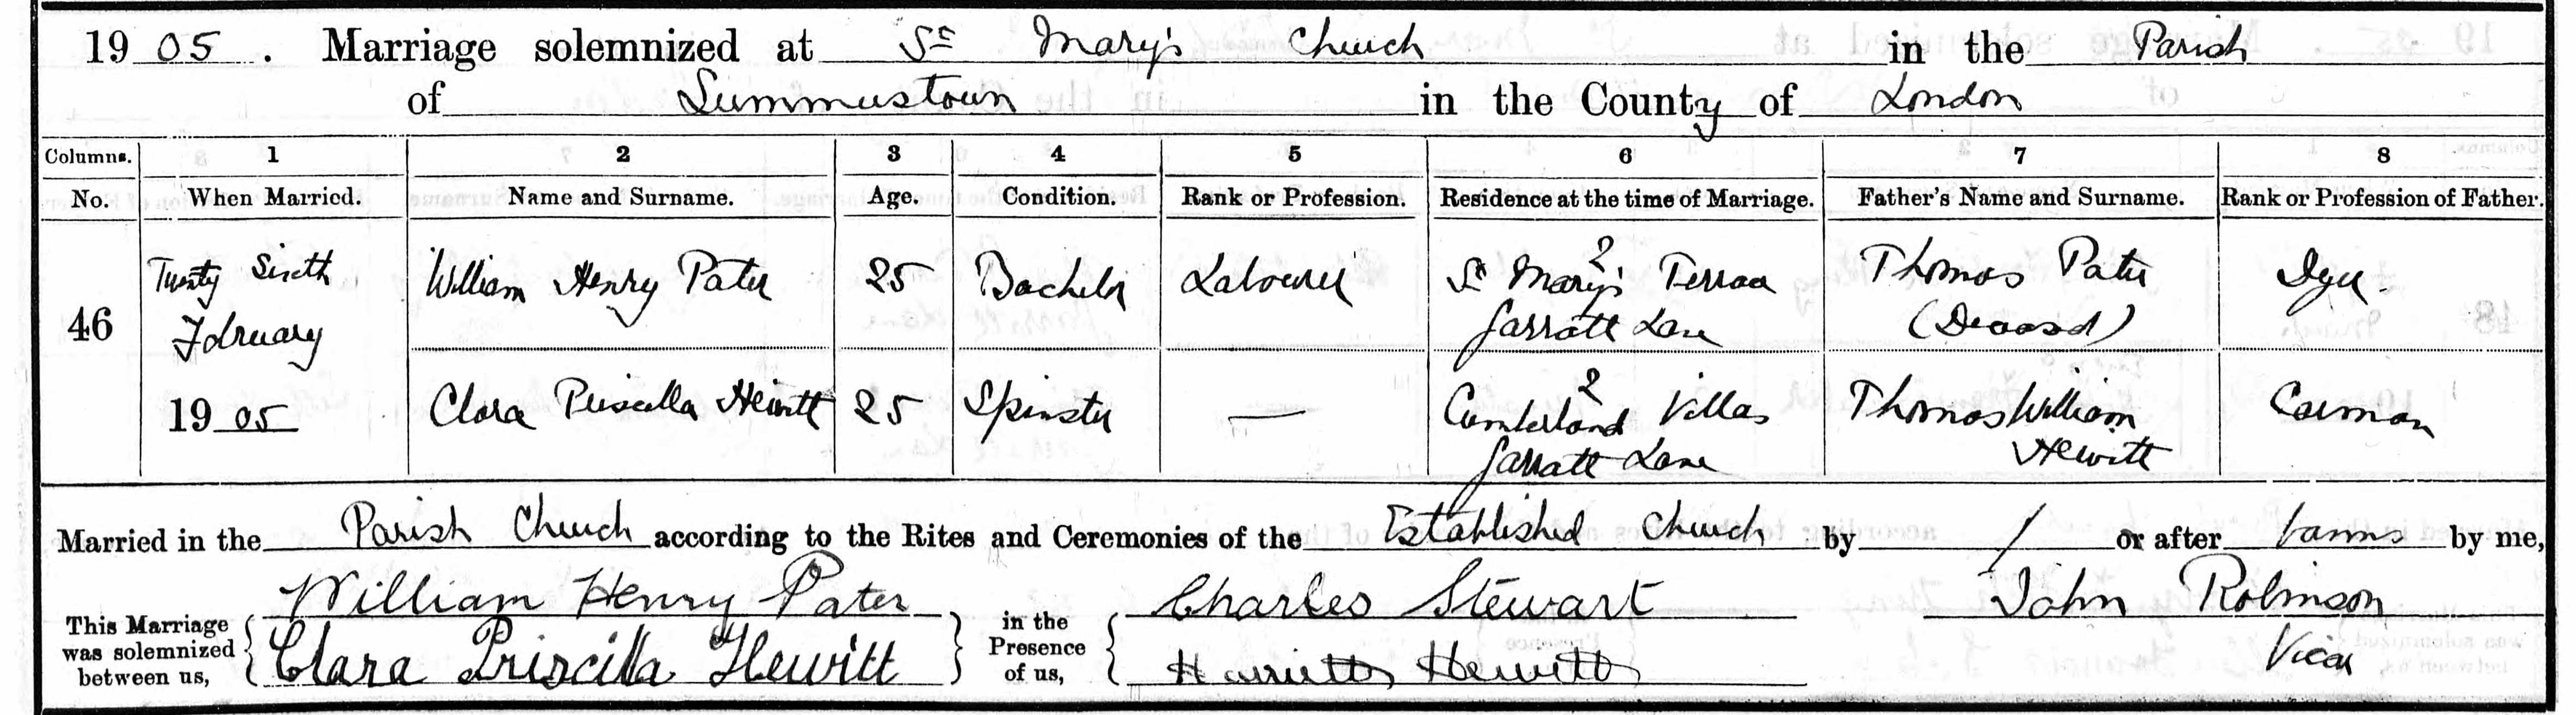 1905. Marriage solemnized at St Mary's Church in the Parish
of Summerstown in the County of London
Columns. 1 2 3 4 5 6 7 8
No. When Married. Name and Surname. Age. Condition. Rank or Profession. Residence at the time of Marriage. Father's Name and Surname. Rank or Profession of Father.
46
Twenty Sixth
February
1905
William Henry Pater 25 Bachelor Labourer
2
St Mary's Terrace
Garratt Lane
Thomas Pater
(Deceased)
Dyer
Clara Priscilla Hewitt 25 Spinster —
2
Cumberland Villas
Garratt Lane
Thomas William
Hewitt
Carman
Married in the Parish Church according to the Rites and Ceremonies of the Established Church by / or after banns by me,
This Marriage
was solemnized
between us,
William Henry Pater
Clara Priscilla Hewitt
in the
Presence
of us,
Charles Stewart
Harriett Hewitt
John Robinson
Vicar